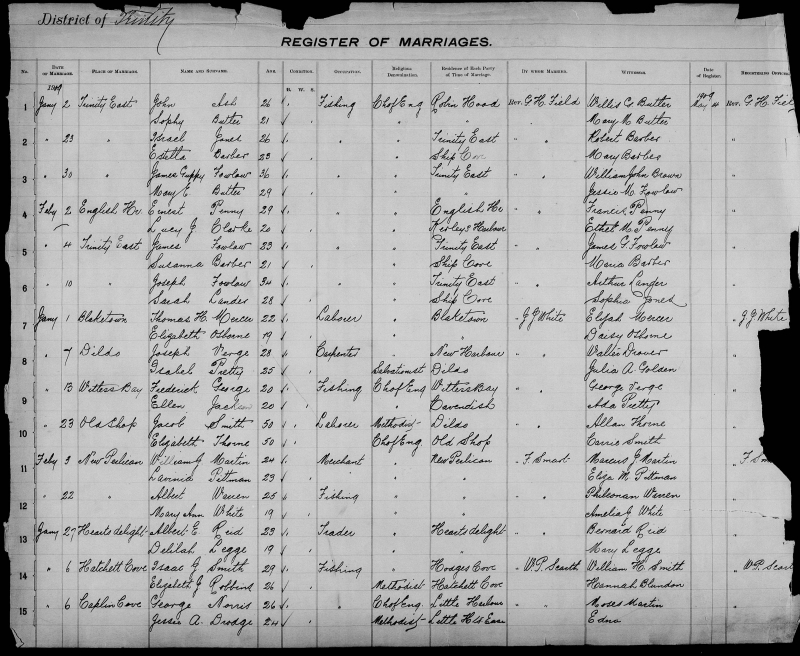 District of Trinity
REGISTER OF MARRIAGES.
No. DATE OF MARRIAGE. PLACE OF MARRIAGE. NAME AND SURNAME. AGE. CONDITION. OCCUPATION. Religious Denomination. Residence of Each Party at Time of Marriage. BY WHOM MARRIED. WITNESSES. Date of Register. REGISTERING OFFICER
B. W. S.
1909 1909
1 Jany 2 Trinity East John Ash 26 Fishing Ch of Eng Robin Hood Rev. G. H. Field Willis C Butler May Rev. G. H. Fiel
Sophy Butler 21 " " Mary M Butler
2 " 23 " Israel Jones 26 " " Trinity East " " Robert Barber "
Estella Barber 23 " Ship Cov Mary Barber
3 " 30 " James Guppy Fowlow 36 " " Trinity East " " William John Brown "
Mary E. Butler 29 " " Jessie M. Fowlow
4 Feby 2 English Hr Ernest Penny 29 " " English Hr " " Francis Penny "
Lucy J Clarke 20 " Kerleys Harbour Ethel M. Penny
5 " 4 Trinity East James Fowlow 23 " " Trinity East " " James G. Fowlow "
Susanna Barber 21 " Ship Cove Maria Barber
6 " 10 " Joseph Fowlow 34 " " Trinity East " " Arthur Lander "
Sarah Lander 28 " Ship Cove Sophia Jones
7 Jany 1 Blaketown Thomas H. Mercer 22 Laborer " Blaketown " J J White Elijah Mercer " J J White
Elizabeth Osborne 19 " " Daisy Osborne
8 " 7 Dildo Joseph Verge 28 Carpenter " New Harbour " " Walter Drover "
Isabell Pretty 25 Salvationist Dildo Julia A Golden
9 " 13 Witters Bay Frederick George 20 Fishing Ch of Eng Witters Bay " " George Verge "
Ellen Jackson 20 " Cavendish Ada Pretty
10 " 23 Old Shop Jacob Smith 50 Laborer Methodist Dildo " " Allan Thorne "
Elizabeth Thorne 50 Ch of Eng Old Shop Carrie Smith
11 Feby 3 New Perlican William J Martin 24 Merchant " New Perlican " F. Smart Marcus J Martin " F Sm
Lavinia Pittman 23 " " Eliza M. Pittman
12 " 22 " Albert Warren 25 Fishing " " " " Phileonan Warren "
Mary Ann White 19 " " Amelia J White
13 Jany 27 Hearts delight Albert E. Reid 23 Trader " Hearts delight " " Bernard Reid "
Delilah Legge 19 " " Mary Legge
14 " 6 Hatchett Cove Isaac G Smith 29 Fishing " Hodges Cove " W. P. Scarth William H. Smith " W P. Scart
Elizabeth J Robbins 26 Methodist Hatchett Cov Hannah Blundon
15 " 6 Caplin Cove George Norris 26 " Ch of Eng Little Harbour " " Moses Martin "
Jessie A. Drodge 24 Methodist Little Hr East Edna